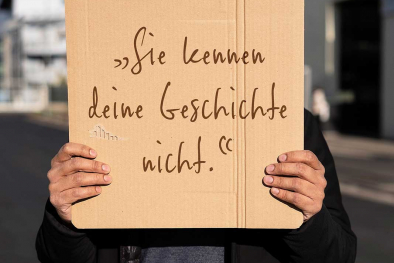 „Sie kennen
deine Geschichte
nicht.“